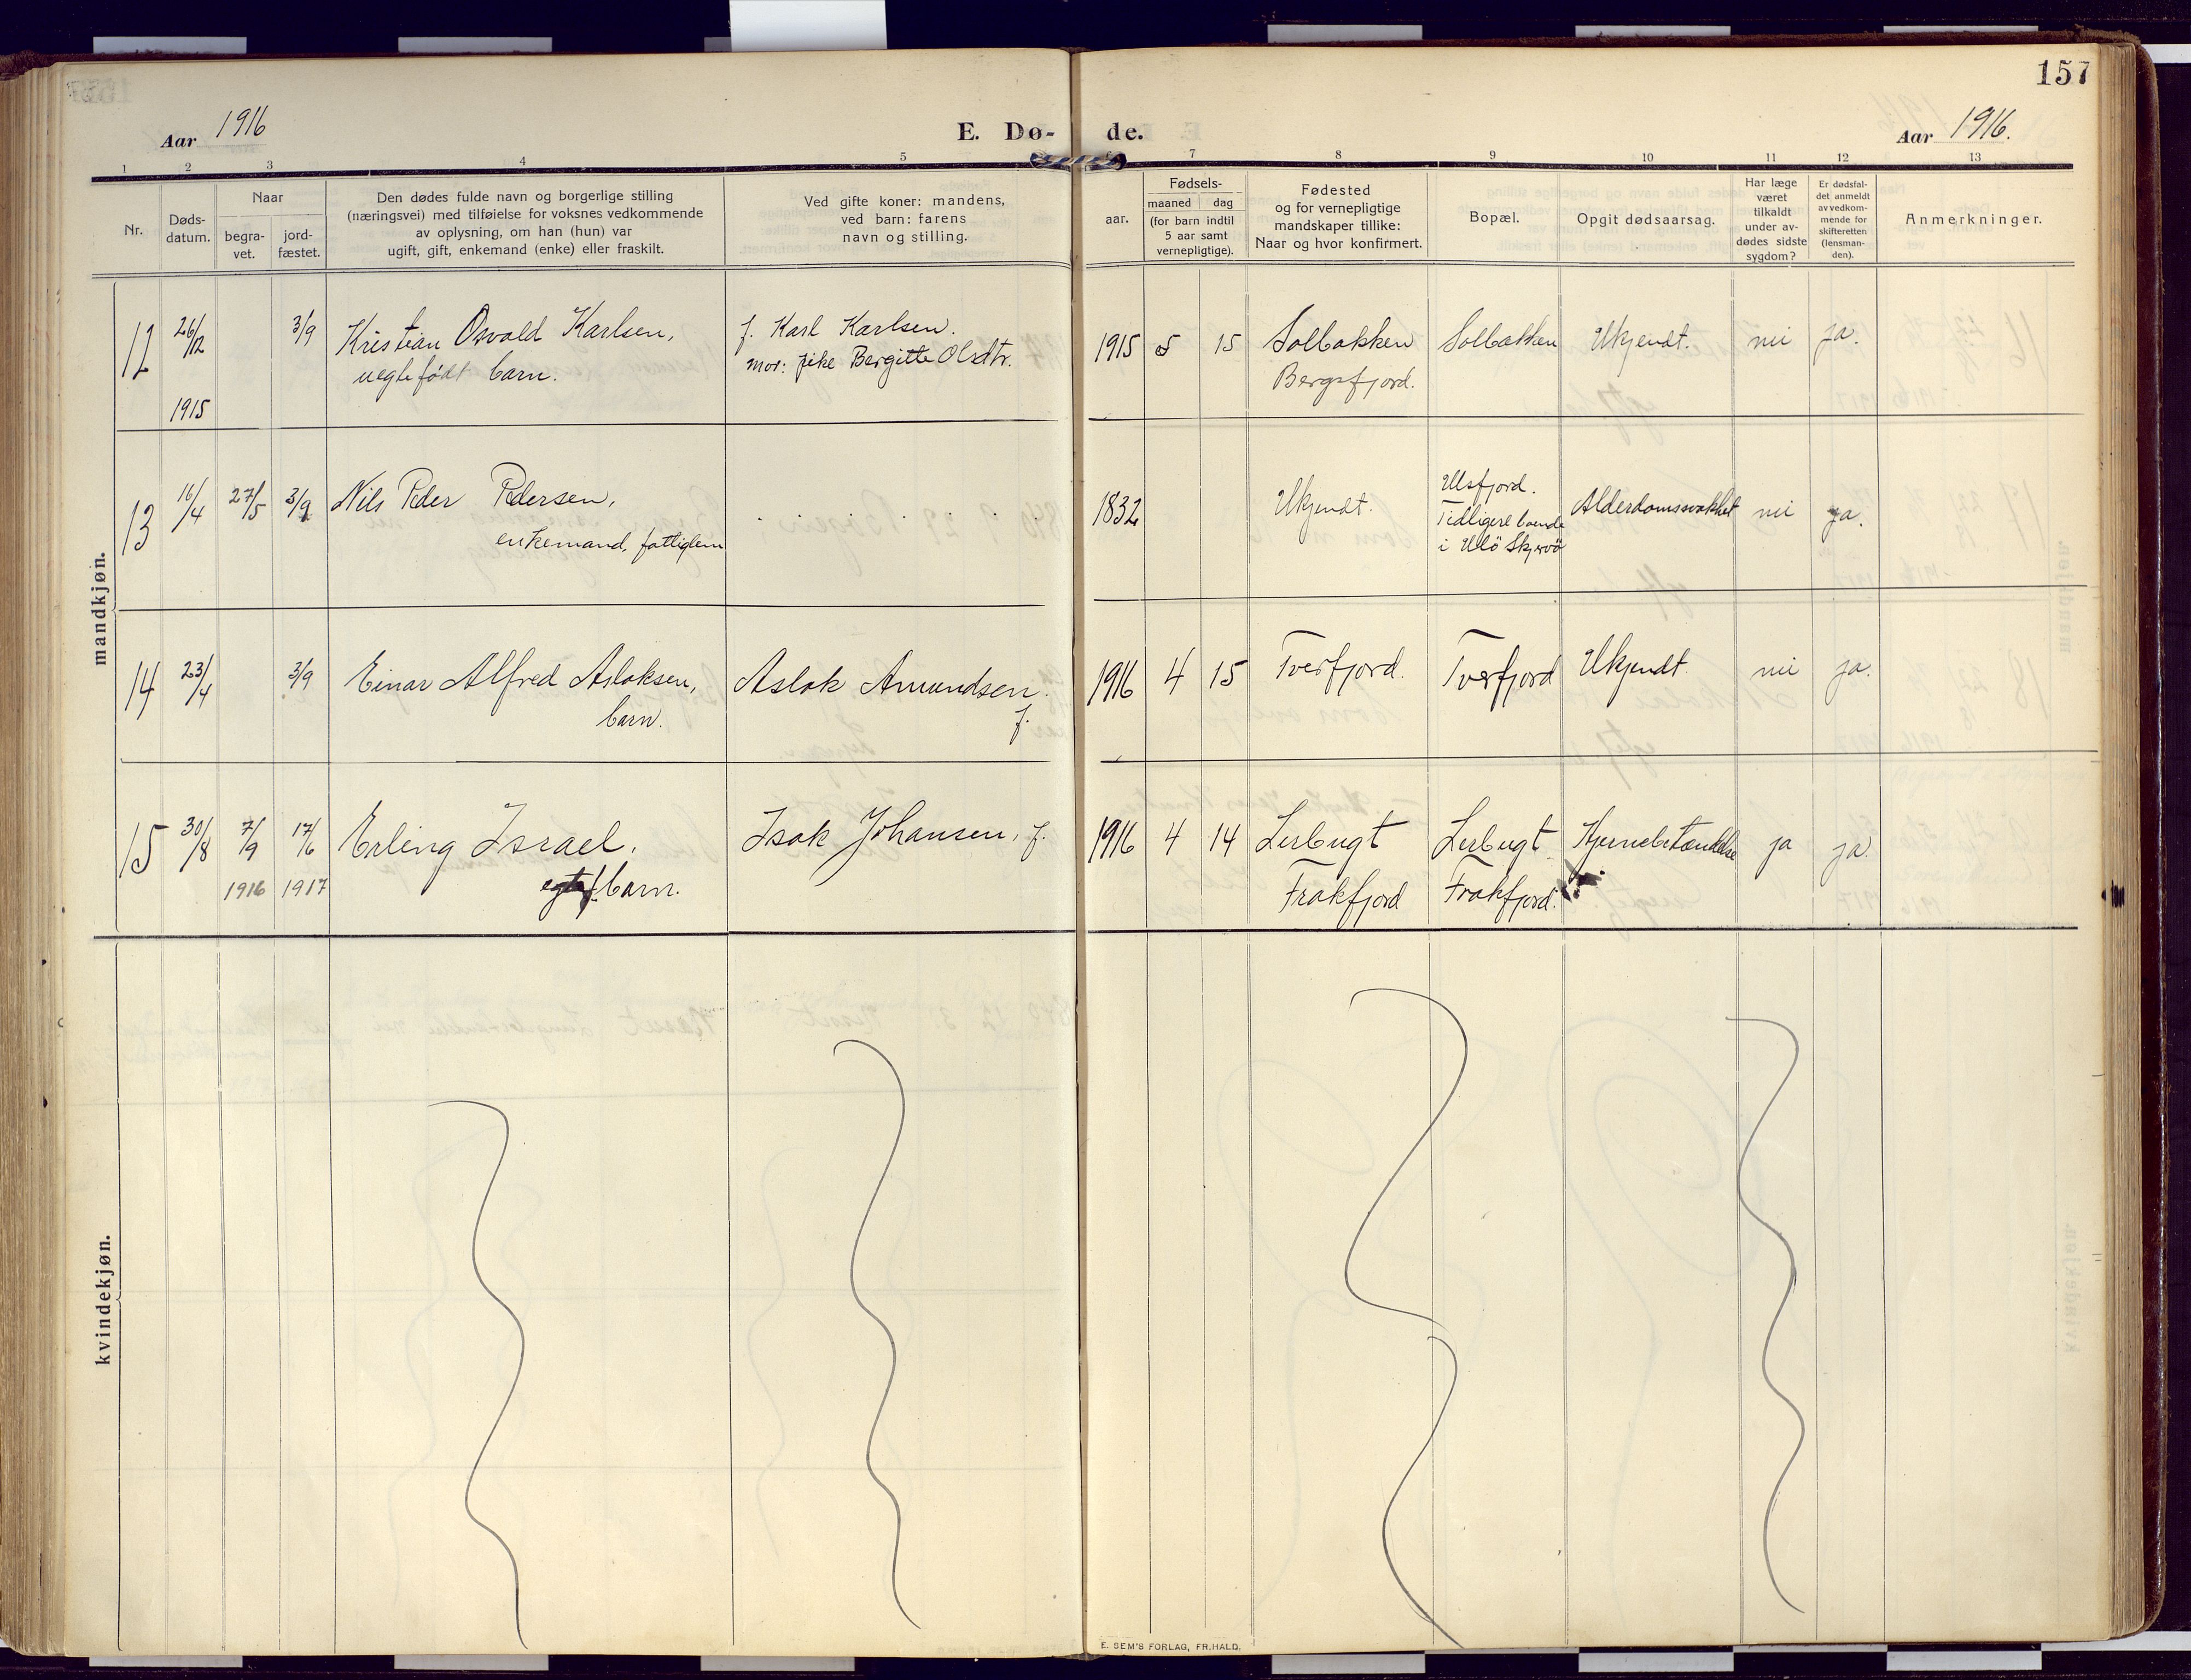 157
Aar 1916
E. Dø- de.
Aar 1916.
1 2 3 4 5 6 7 8 9 10 11 12 13
Nr.
Døds-
datum.
Naar
begra-
vet.
jord-
fæstet.
Den dødes fulde navn og borgerlige stilling
(næringsvei) med tilføielse for voksnes vedkommende
av oplysning, om han (hun) var
ugift, gift, enkemand (enke) eller fraskilt.
Ved gifte koner: mandens,
ved barn: farens
navn og stilling.
Fødsels-
aar.
maaned dag
(for barn indtil
5 aar samt
vernepligtige).
Fødested
og for vernepligtige
mandskaper tillike:
Naar og hvor konfirmert.
Bopæl.
Opgit dødsaarsag.
Har læge
været
tilkaldt
under av-
dødes sidste
sygdom?
Er dødsfal-
det anmeldt
av vedkom-
mende for
skifteretten
(lensman-
den).
Anmerkninger.
mandkjøn.
12 26/12 3/9 Kristian Osvald Karlsen, f. Karl Karlsen. 1915 5 15 Solbakken Solbakken Ukjendt. nei ja.
uegtefødt barn. mor: Bergitte Olsdtr. Bergsfjord.
1915
13 16/4 27/5 3/9 Nils Peder Pedersen, 1832 Ukjendt. Ulsfjord. Alderdomssvakhet nei ja.
enkemand, fattiglem Tidligere boende
i Ulö Skjervö
14 23/4 3/9 Einar Alfred Aslaksen, Aslak Amundsen. 1916 4 15 Tverfjord. Tverfjord Ukjendt. nei ja.
barn. f.
15 30/8 7/9 17/6 Erling Israel, Isak Johansen, f. 1916 4 14 Lerbugt Lerbugt Hjernebetændelse ja ja.
1916 1917 egtef. barn. Frakfjord Frakfjord.
kvindekjøn.
E. SEM'S FORLAG, FR.HALD.